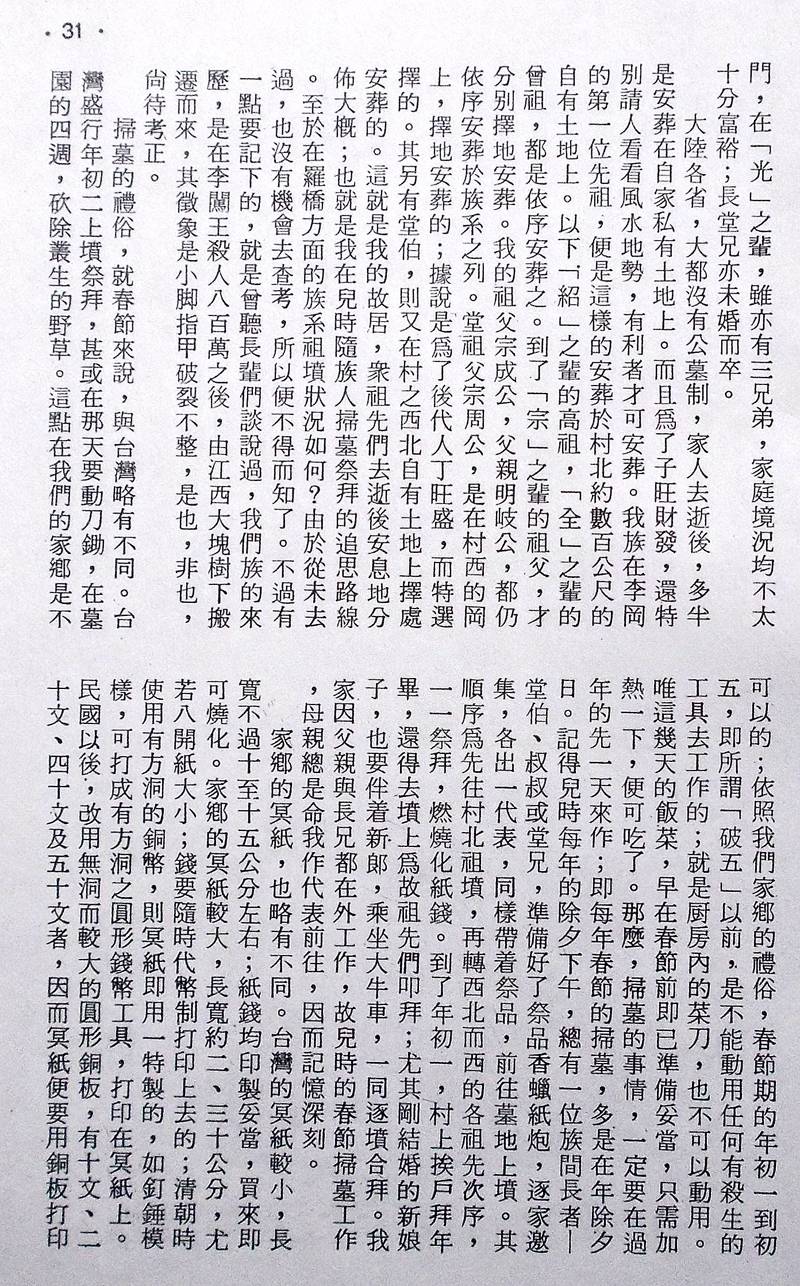 • 31 •
門，在「光」之輩，雖亦有三兄弟，家庭境況均不太
十分富裕；長堂兄亦未婚而卒。
大陸各省，大都沒有公墓制，家人去逝後，多半
是安葬在自家私有土地上。而且爲了子旺財發，還特
別請人看看風水地勢，有利者才可安葬。我族在李岡
的第一位先祖，便是這樣的安葬於村北約數百公尺的
自有土地上。以下「紹」之輩的高祖，「全」之輩的
曾祖，都是依序安葬之。到了「宗」之輩的祖父，才
分別擇地安葬。我的祖父宗成公，父親明岐公，都仍
依序安葬於族系之列。堂祖父宗周公，是在村西的岡
上，擇地安葬的；據說是爲了後代人丁旺盛，而特選
擇的。其另有堂伯，則又在村之西北自有土地上擇處
安葬的。這就是我的故居，衆祖先們去逝後安息地分
佈大概；也就是我在兒時隨族人掃墓祭拜的追思路線
。至於在羅橋方面的族系祖墳狀況如何？由於從未去
過，也沒有機會去查考，所以便不得而知了。不過有
一點要記下的，就是曾聽長輩們談說過，我們族的來
歷，是在李闖王殺人八百萬之後，由江西大塊樹下搬
遷而來，其徵象是小脚指甲破裂不整，是也，非也，
尙待考正。
掃墓的禮俗，就春節來說，與台灣略有不同。台
灣盛行年初二上墳祭拜，甚或在那天要動刀鋤，在墓
園的四週，砍除叢生的野草。這點在我們的家鄉是不
可以的；依照我們家鄉的禮俗，春節期的年初一到初
五，即所謂「破五」以前，是不能動用任何有殺生的
工具去工作的；就是厨房內的菜刀，也不可以動用。
唯這幾天的飯菜，早在春節前即已準備妥當，只需加
熱一下，便可吃了。那麼，掃墓的事情，一定要在過
年的先一天來作；即每年春節的掃墓，多是在年除夕
日。記得兒時每年的除夕下午，總有一位族間長者—
堂伯、叔叔或堂兄，準備好了祭品香蠟紙炮，逐家邀
集，各出一代表，同樣帶着祭品，前往墓地上墳。其
順序爲先往村北祖墳，再轉西北而西的各祖先次序，
一一祭拜，燃燒化紙錢。到了年初一，村上挨戶拜年
畢，還得去墳上爲故祖先們叩拜；尤其剛結婚的新娘
子，也要伴着新郞，乘坐大牛車，一同逐墳合拜。我
家因父親與長兄都在外工作，故兒時的春節掃墓工作
，母親總是命我作代表前往，因而記憶深刻。
家鄉的冥紙，也略有不同。台灣的冥紙較小，長
寬不過十至十五公分左右；紙錢均印製妥當，買來即
可燒化。家鄉的冥紙較大，長寬約二、三十公分，尤
若八開紙大小；錢要隨時代幣制打印上去的；清朝時
使用有方洞的銅幣，則冥紙即用一特製的，如釘錘模
樣，可打成有方洞之圓形錢幣工具，打印在冥紙上。
民國以後，改用無洞而較大的圓形銅板，有十文、二
十文、四十文及五十文者，因而冥紙便要用銅板打印